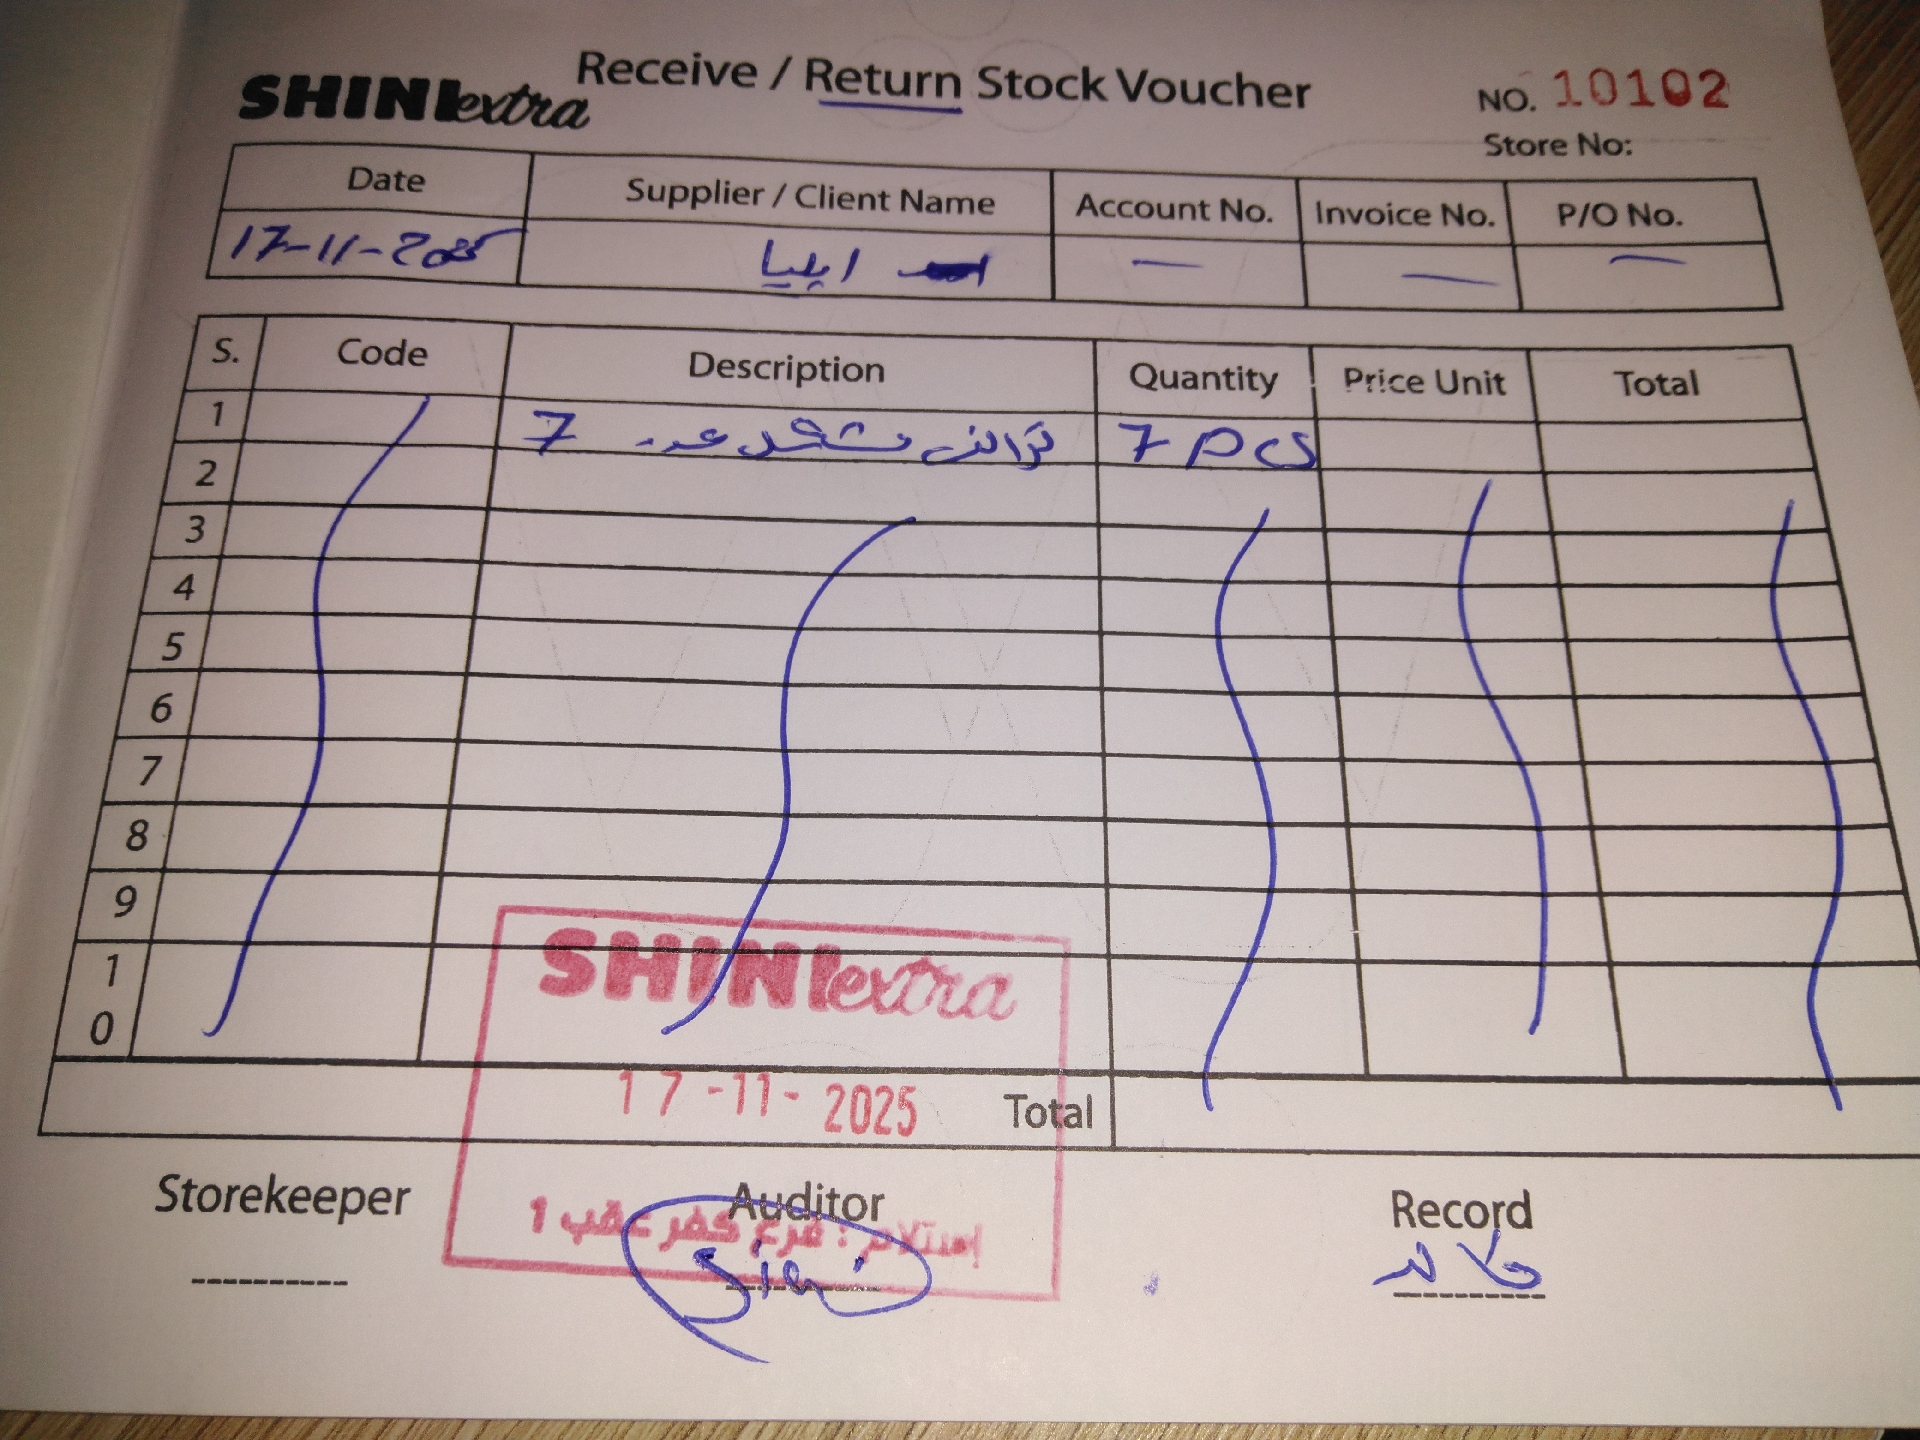 SHINI extra
Receive / Return Stock Voucher
NO. 10102
Store No:
Date Supplier / Client Name Account No. Invoice No. P/O No.
17-11-2025 ايليا — — —
S. Code Description Quantity Price Unit Total
1 مشكل عدد 7 7 PCS
2
3
4
5
6
7
8
9
10
SHINI extra
17-11-2025
Total
Storekeeper Auditor Record
إستلام : فرع كفر عقب 1
خالد